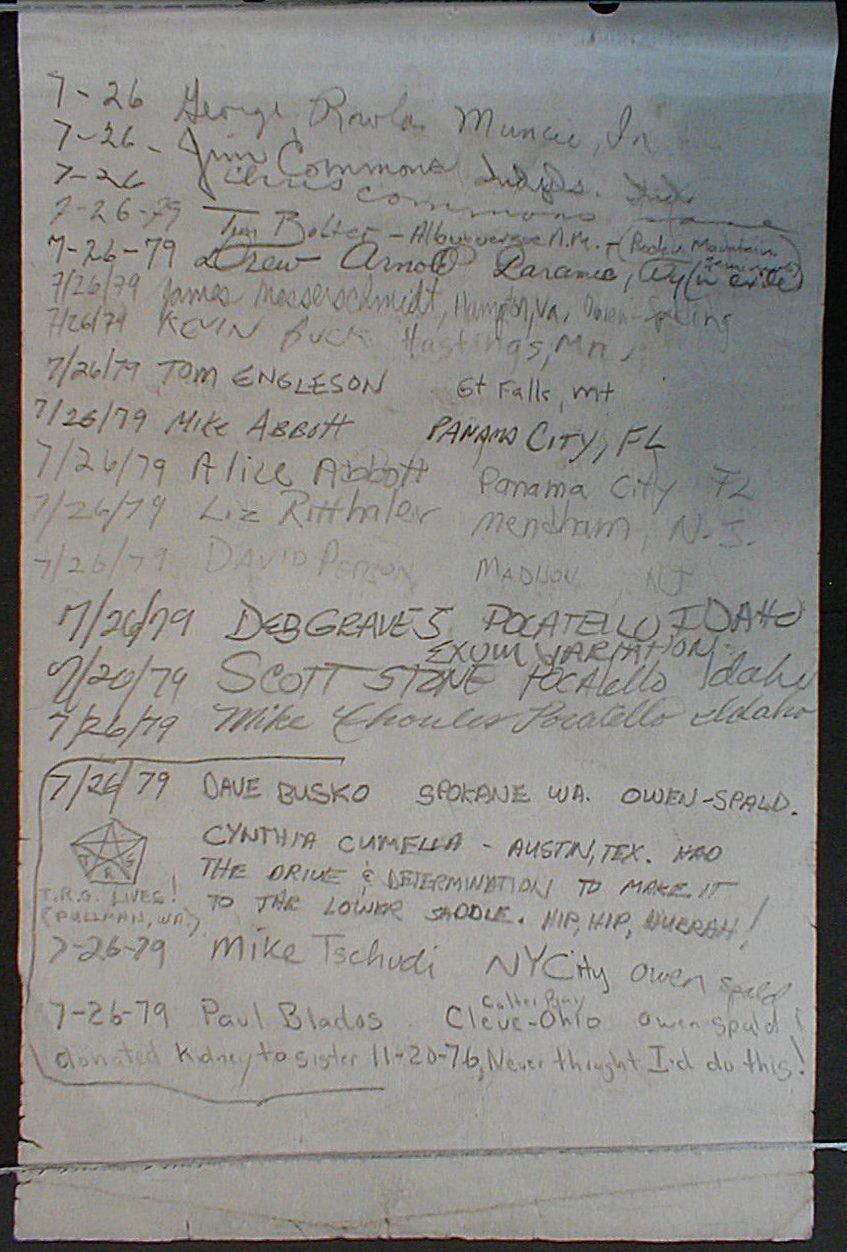 7-26 George Muncie, In
7-26 - Jim Commons
7-26 Chris Commons
7-26-79 Tim Bolter - Albuquerque N.M. - (
7-26-79 Drew Arnold Laramie, Wy (in exile)
7/26/79 James Messerschmidt, Hampton, Va. Owen-Spalding
7/26/79 KEVIN BUCK Hastings, Mn
7/26/79 TOM ENGLESON Gt Falls, mt
7/26/79 MIKE ABBOTT PANAMA CITY, FL
7/26/79 Alice Abbott Panama City FL
7/26/79 Liz Ritthaler Mendham, N.J.
7/26/79 DAVID MADISON, NJ
7/26/79 DEB GRAVES POCATELLO IDAHO
EXUM VARIATION
7/26/79 SCOTT STONE POCATello Idaho
7/26/79 Mike Pocatello Idaho
7/26/79 DAVE BUSKO SPOKANE WA. OWEN-SPALD.
CYNTHIA CUMELLA - AUSTIN, TEX. HAD
THE DRIVE & DETERMINATION TO MAKE IT
TO THE LOWER SADDLE. HIP, HIP, HURRAH!
T R G
T.R.G. LIVES!
(PULLMAN, WA.)
7-26-79 Mike Tschudi NYCity Owen Spald
7-26-79 Paul Blados Cleve-Ohio Owen Spald!
donated kidney to sister 11-20-76, Never thought I'd do this!